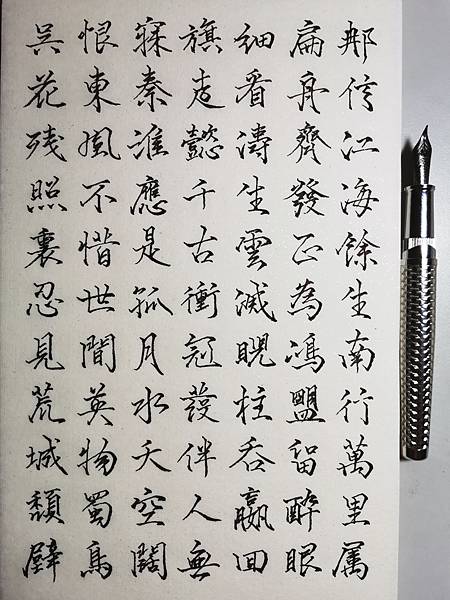 那信江海餘生南行萬里属
扁舟齊發正為鴻盟留醉眼
細看濤生雲滅睨柱吞嬴回
旗走懿千古衝冠發伴人無
寐秦淮應是孤月水天空闊
恨東風不惜世間英物蜀鳥
吳花残照裏忍見荒城頹壁